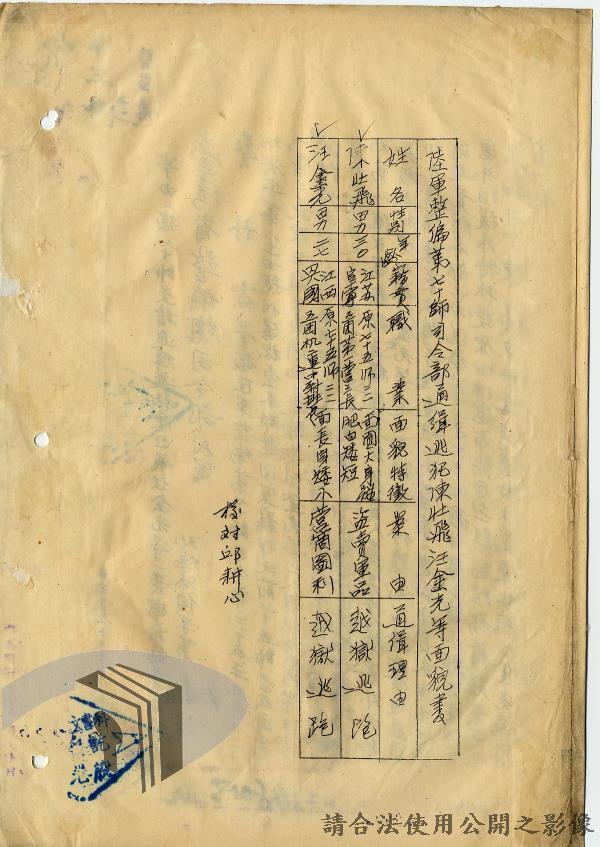 陸軍整編第七十師司令部通緝逃犯陳壯飛汪金光等面貌書
姓名 性別 年齡 籍貫 職業 面貌特徵 案由 通緝理由
陳壯飛 男 三〇 江蘇 原七十五师 面圓大身體肥白矮短 盜賣軍品 越獄逃跑
汪金光 男 二七 江西 原七十五师 面長身矮小 營商圖利 越獄逃跑
校对邱耕心
請合法使用公開之影像